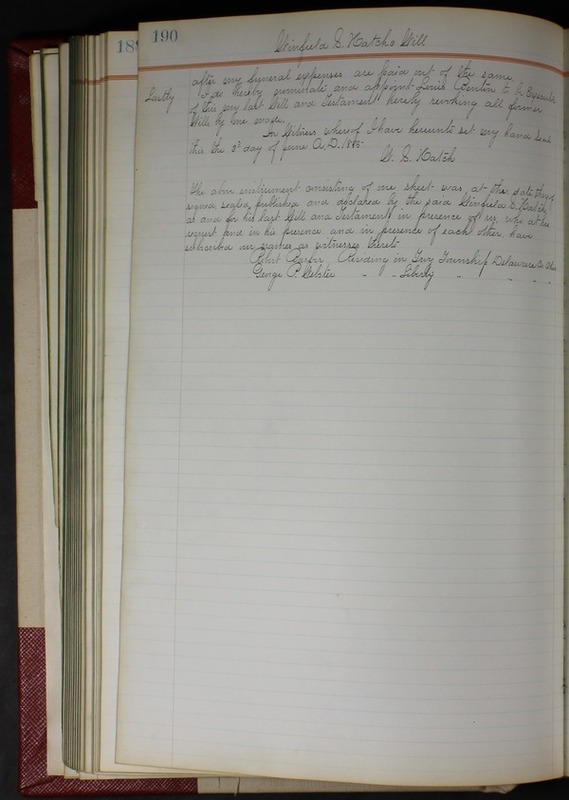 190
Winfield S. Hatchs Will
189
after my funeral expenses are paid out of the same.
Lastly I do hereby nominate and appoint Lewis to be Executor
of this my last Will and Testament hereby revoking all former
Wills by me made.
In Witness whereof I have hereunto set my hand and
this the 3d day of June A.D. 1885
W. S. Hatch
The above instrument consisting of one sheet was, at the date thereof
signed, sealed, published and declared by the said Winfield S. Hatch
as and for his last Will and Testament in presence of us, who at his
request and in his presence and in presence of each other, have
subscribed our names as witnesses thereto
Robert Residing in Troy Township Delaware Co. Ohio
George P. Welster " " Liberty " " " "